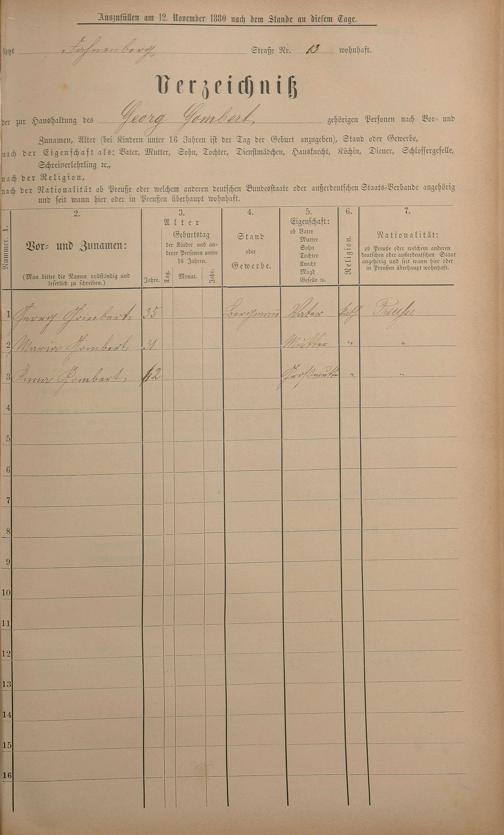 Auszufüllen am 12. November 1880 nach dem Stande an diesem Tage.
jetzt Straße Nr. 13 wohnhaft.
Verzeichniß
der zur Haushaltung des Georg Gombert gehörigen Personen nach Vor- und
Zunamen, Alter (bei Kindern unter 16 Jahren ist der Tag der Geburt anzugeben), Stand oder Gewerbe,
nach der Eigenschaft als: Vater, Mutter, Sohn, Tochter, Dienstmädchen, Hausknecht, Köchin, Diener, Schlossergeselle,
Schreinerlehrling ꝛc.,
nach der Religion,
nach der Nationalität ob Preuße oder welchem anderen deutschen Bundesstaate oder außerdeutschen Staats-Verbande angehörig
und seit wann hier oder in Preußen überhaupt wohnhaft.
Nummer. 1.
2.
Vor- und Zunamen:
(Man bittet die Namen vollständig und
leserlich zu schreiben.)
3.
Alter
Geburtstag
der Kinder und an-
derer Personen unter
16 Jahren.
Jahre. Tag. Monat. Jahr.
4.
Stand
oder
Gewerbe.
5.
Eigenschaft:
ob Vater
Mutter
Sohn
Tochter
Knecht
Magd
Geselle ꝛc.
6.
Religion.
7.
Nationalität:
ob Preuße oder welchem anderen
deutschen oder außerdeutschen Staat
angehörig und seit wann hier oder
in Preußen überhaupt wohnhaft.
1 Georg Gombert 35 Bergmann Vater kath Preuße
2 Maria Gombert 31 Mutter " "
3 Anna Gombert Großmutter " "
4
5
6
7
8
9
10
11
12
13
14
15
16